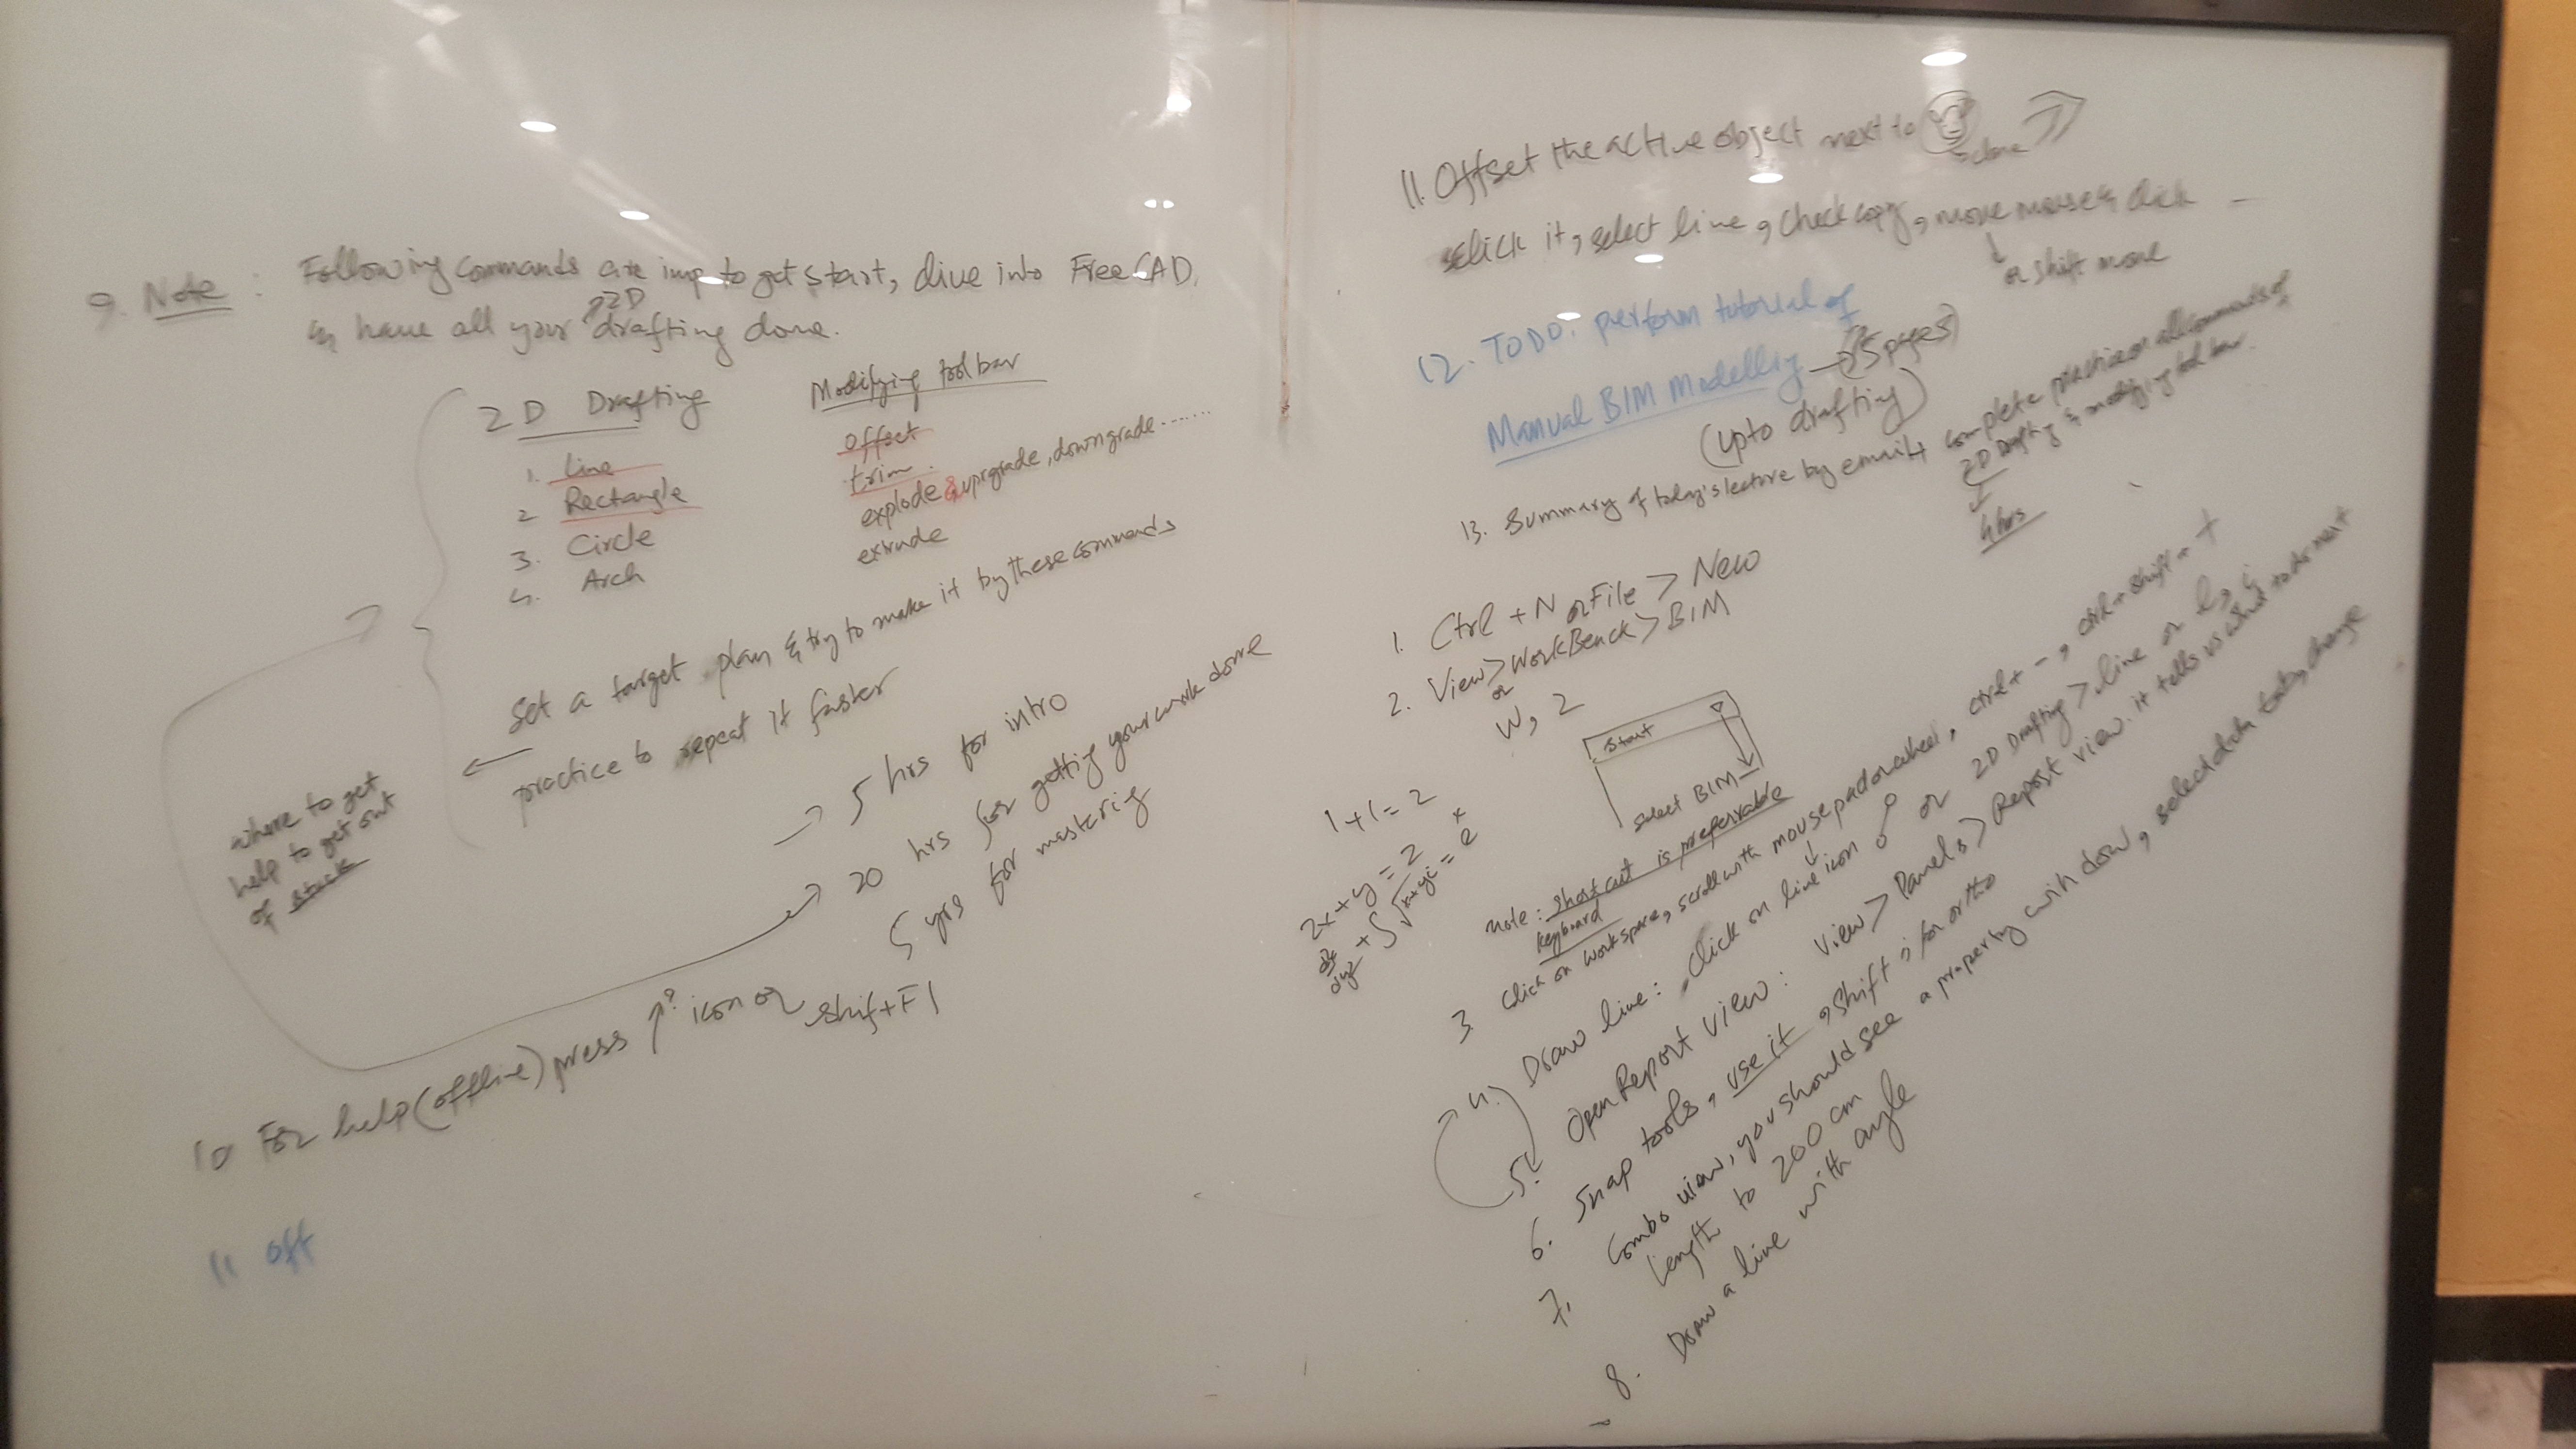 9. Note : Following commands are imp to get start, dive into FreeCAD,
& have all your 2D drafting done.
2D Drafting
1. Line
2 Rectangle
3. Circle
4. Arch
Modifying toolbar
offset
trim
explode & uprgrade, downgrade......
extrude
Set a target plan & try to make it by these commands
practice to repeat it faster
where to get
help to get out
of stuck
5 hrs for intro
20 hrs for getting your work done
5 yrs for mastering
10 For help (offline) press ↑? icon or shif+F1
11 off
11. Offset the active object next to
clone
click it, select line, check copy, move mouse & click
or shift move
12. TODO: perform tutorial of
Manual BIM Modelling → (25 pages)
(upto drafting)
13. Summary of today's lecture by email + complete practice on all commands of
2D Drafting & modifying tool bar.
4 hrs
1. Ctrl + N or File > New
2. View > WorkBenck > BIM
or
W, 2
Start
select BIM
Note: short cut is preferrable
keyboard
1+1=2
2x+y=2
3. Click on workspace, scroll with mouse pad or wheel, ctrl + -, ctrl + shift +
4. Draw line: click on line icon or 2D Drafting > line or l, i
5. Open Report view: View > Panels > Report view. it tells us what to do next
6. Snap tools, use it, shift; for ortho
7. Combo view, you should see a property window, select data tab, change
length to 200 cm
8. Draw a line with angle